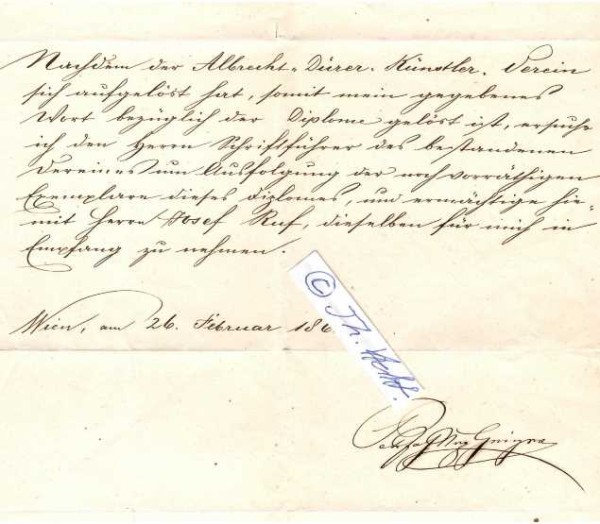 Nachdem der Albrecht-Dürer-Künstler-Verein
sich aufgelöst hat, somit mein gegebenes
Wort bezüglich der Diplome gelöst ist, ersuche
ich den Herrn Schriftführer des bestandenen
Vereines um Ausfolgung der noch vorräthigen
Exemplare dieses Diplomes, und ermächtige hie=
mit Herrn Josef Ruf, dieselben für mich in
Empfang zu nehmen.
Wien, am 26. Februar 186
© Th. Hecht.
Geiger